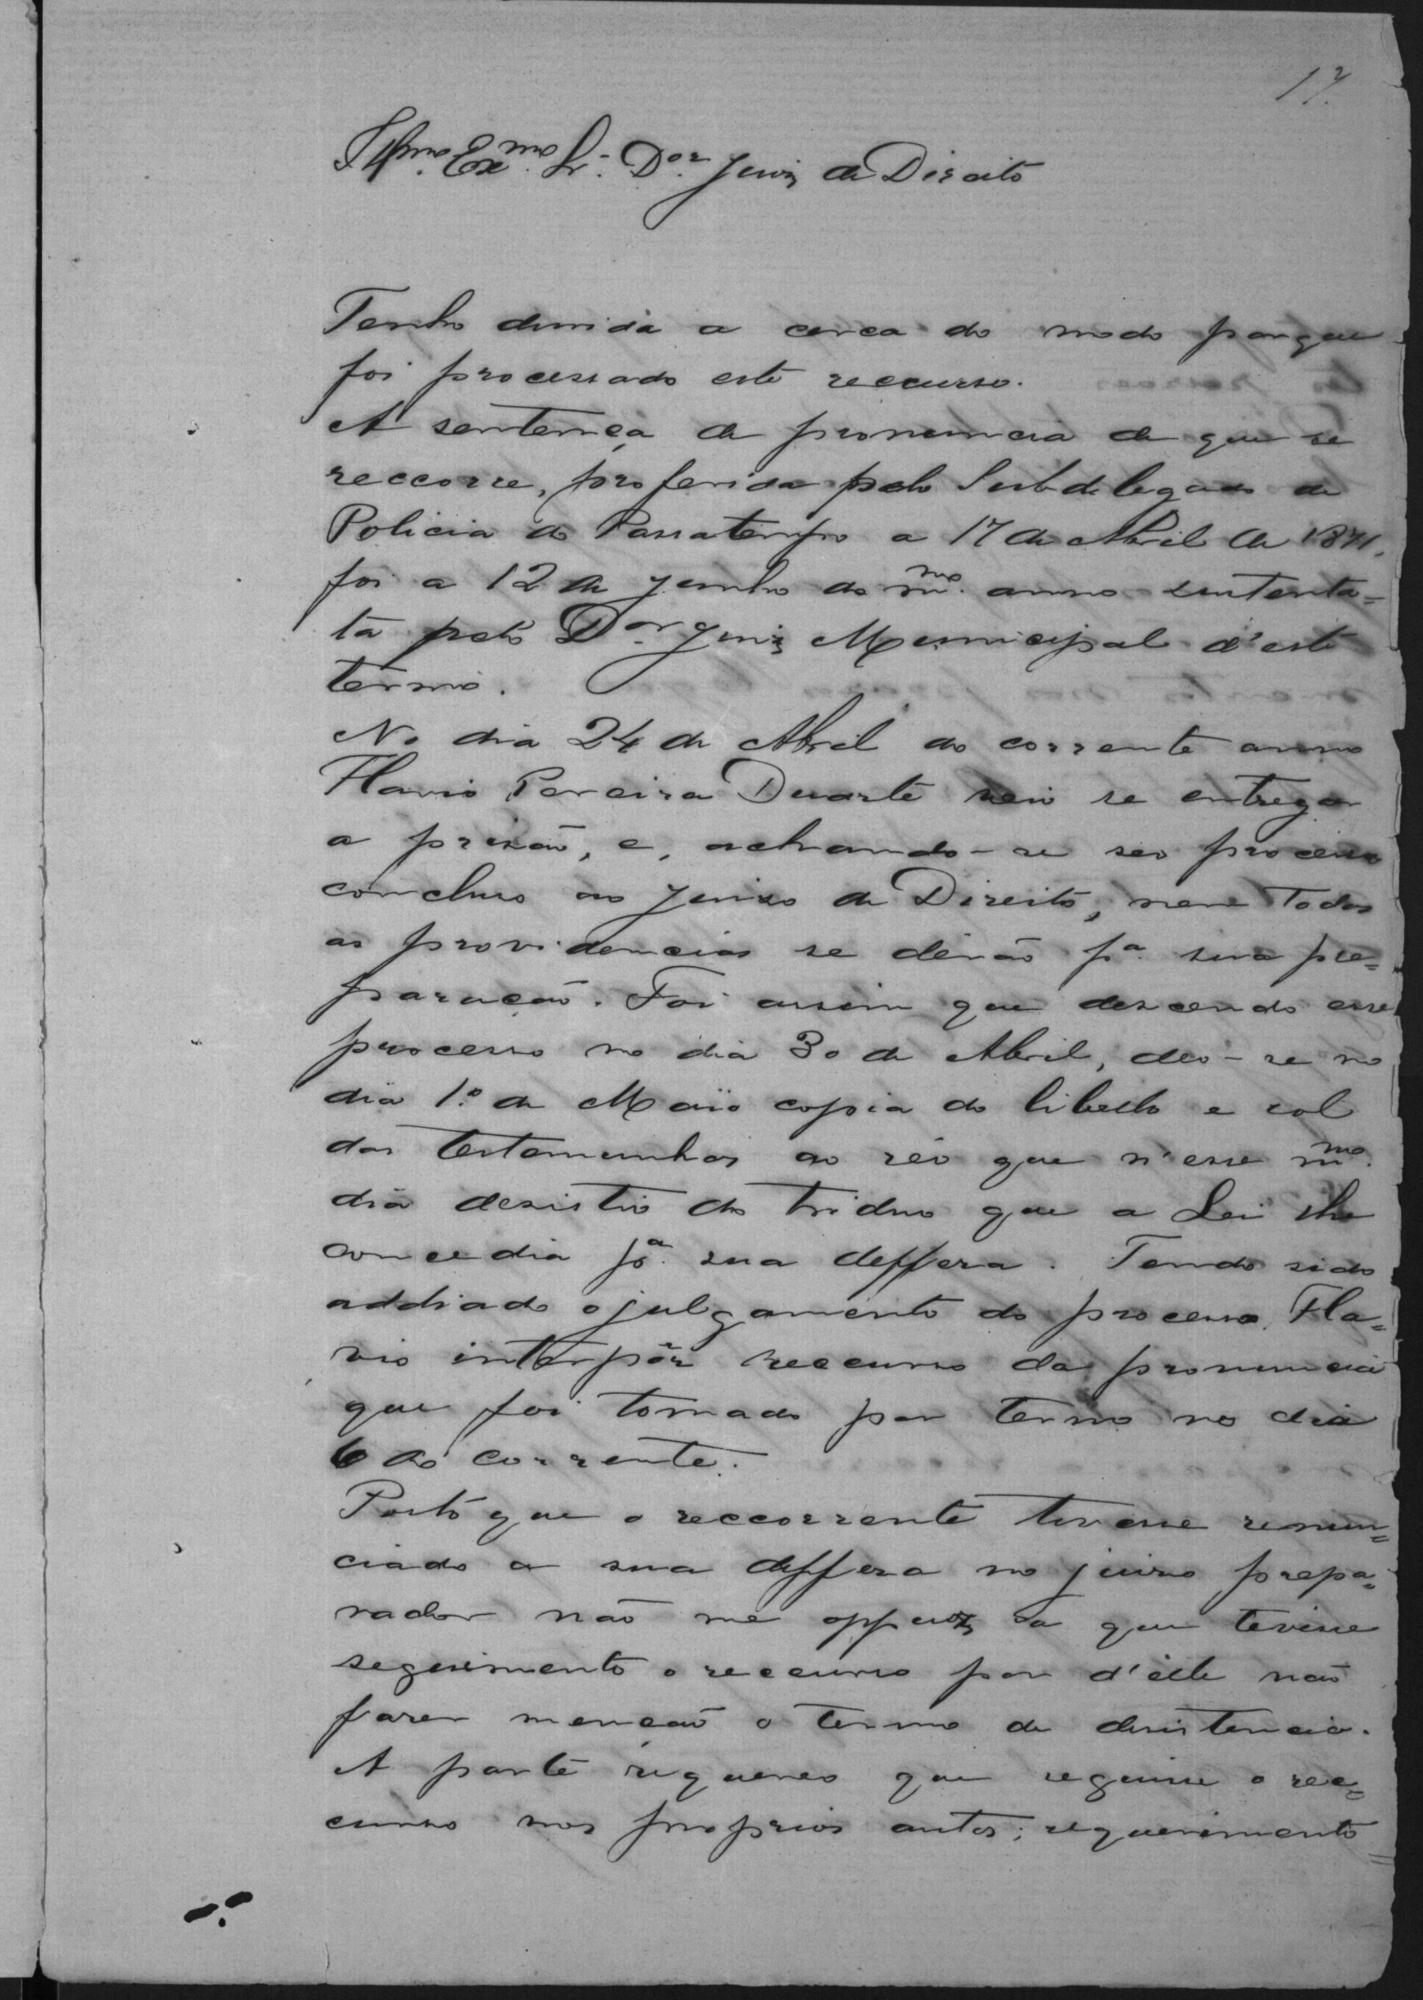 17.
Illmo. Exmo. Sr. Dor. Juiz de Direito
Tenho duvida a cerca do modo porque
foi processado este reccurso.
A sentença de pronuncia de que se
reccorre, proferida pelo Subdelegado de
Policia do Passatempo a 17 de Abril de 1871,
foi a 12 de Junho do mmo. anno sustenta=
ta pelo Dor Juiz Municipal d'este
termo.
No dia 24 de Abril do corrente anno
Flavio Pereira Duarte veio se entregar
a prisão, e, achando-se seo processo
concluso ao Juizo de Direito, nem todas
as providencias se derão pa. sua pre=
paração. Foi assim que descendo esse
processo no dia 30 de Abril, deo-se no
dia 1.º de Maio copia do libello e rol
das testemunhas ao réo que n'esse mmo.
dia desistio do triduo que a Lei lhe
concedia pa. sua deffesa. Tendo sido
addiado o julgamento do processo, Fla=
vio interpôz reccurso da pronuncia
que foi tomado por termo no dia
6 do corrente.
Posto que o reccorrente tivesse renun=
ciado a sua deffesa no juizo prepa=
rador não me oppuz a que tivesse
seguimento o reccurso por d'elle não
fazer menção o termo de desistencia.
A parte requereo que seguisse o rec=
curso nos proprios autos; requerimento=